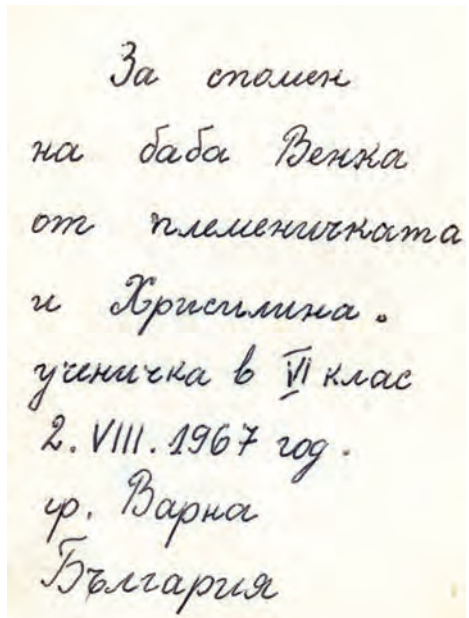 За спомен
на баба Венка
от племеничката
и Хрисилина.
ученичка в VI клас
2. VIII. 1967 год.
гр. Варна
България